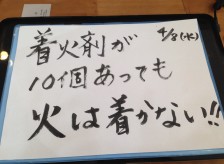 4/8(水)
着火剤が
10個あっても
火は着かない!!